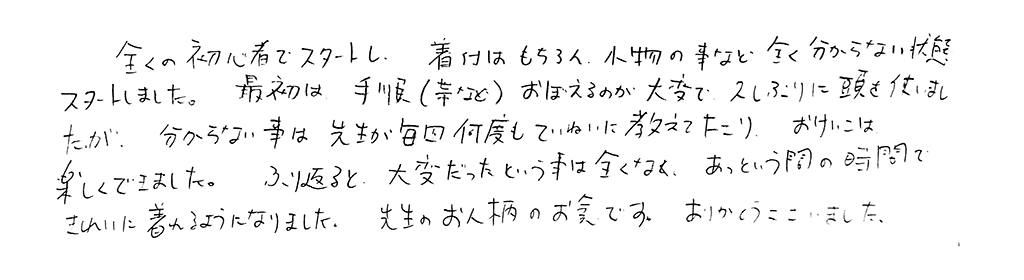 全くの初心者でスタートし、着付はもちろん、小物の事など全く分からない状態
スタートしました。最初は、手順(帯など)おぼえるのが大変で、久しぶりに頭を使いまし
たが、分からない事は先生が毎回何度もていねいに教えて下さり、おけいこは
楽しくできました。ふり返ると、大変だったという事は全くなく、あっという間の時間で
きれいに着れるようになりました。先生のお人柄のお食です。ありがとうございました。